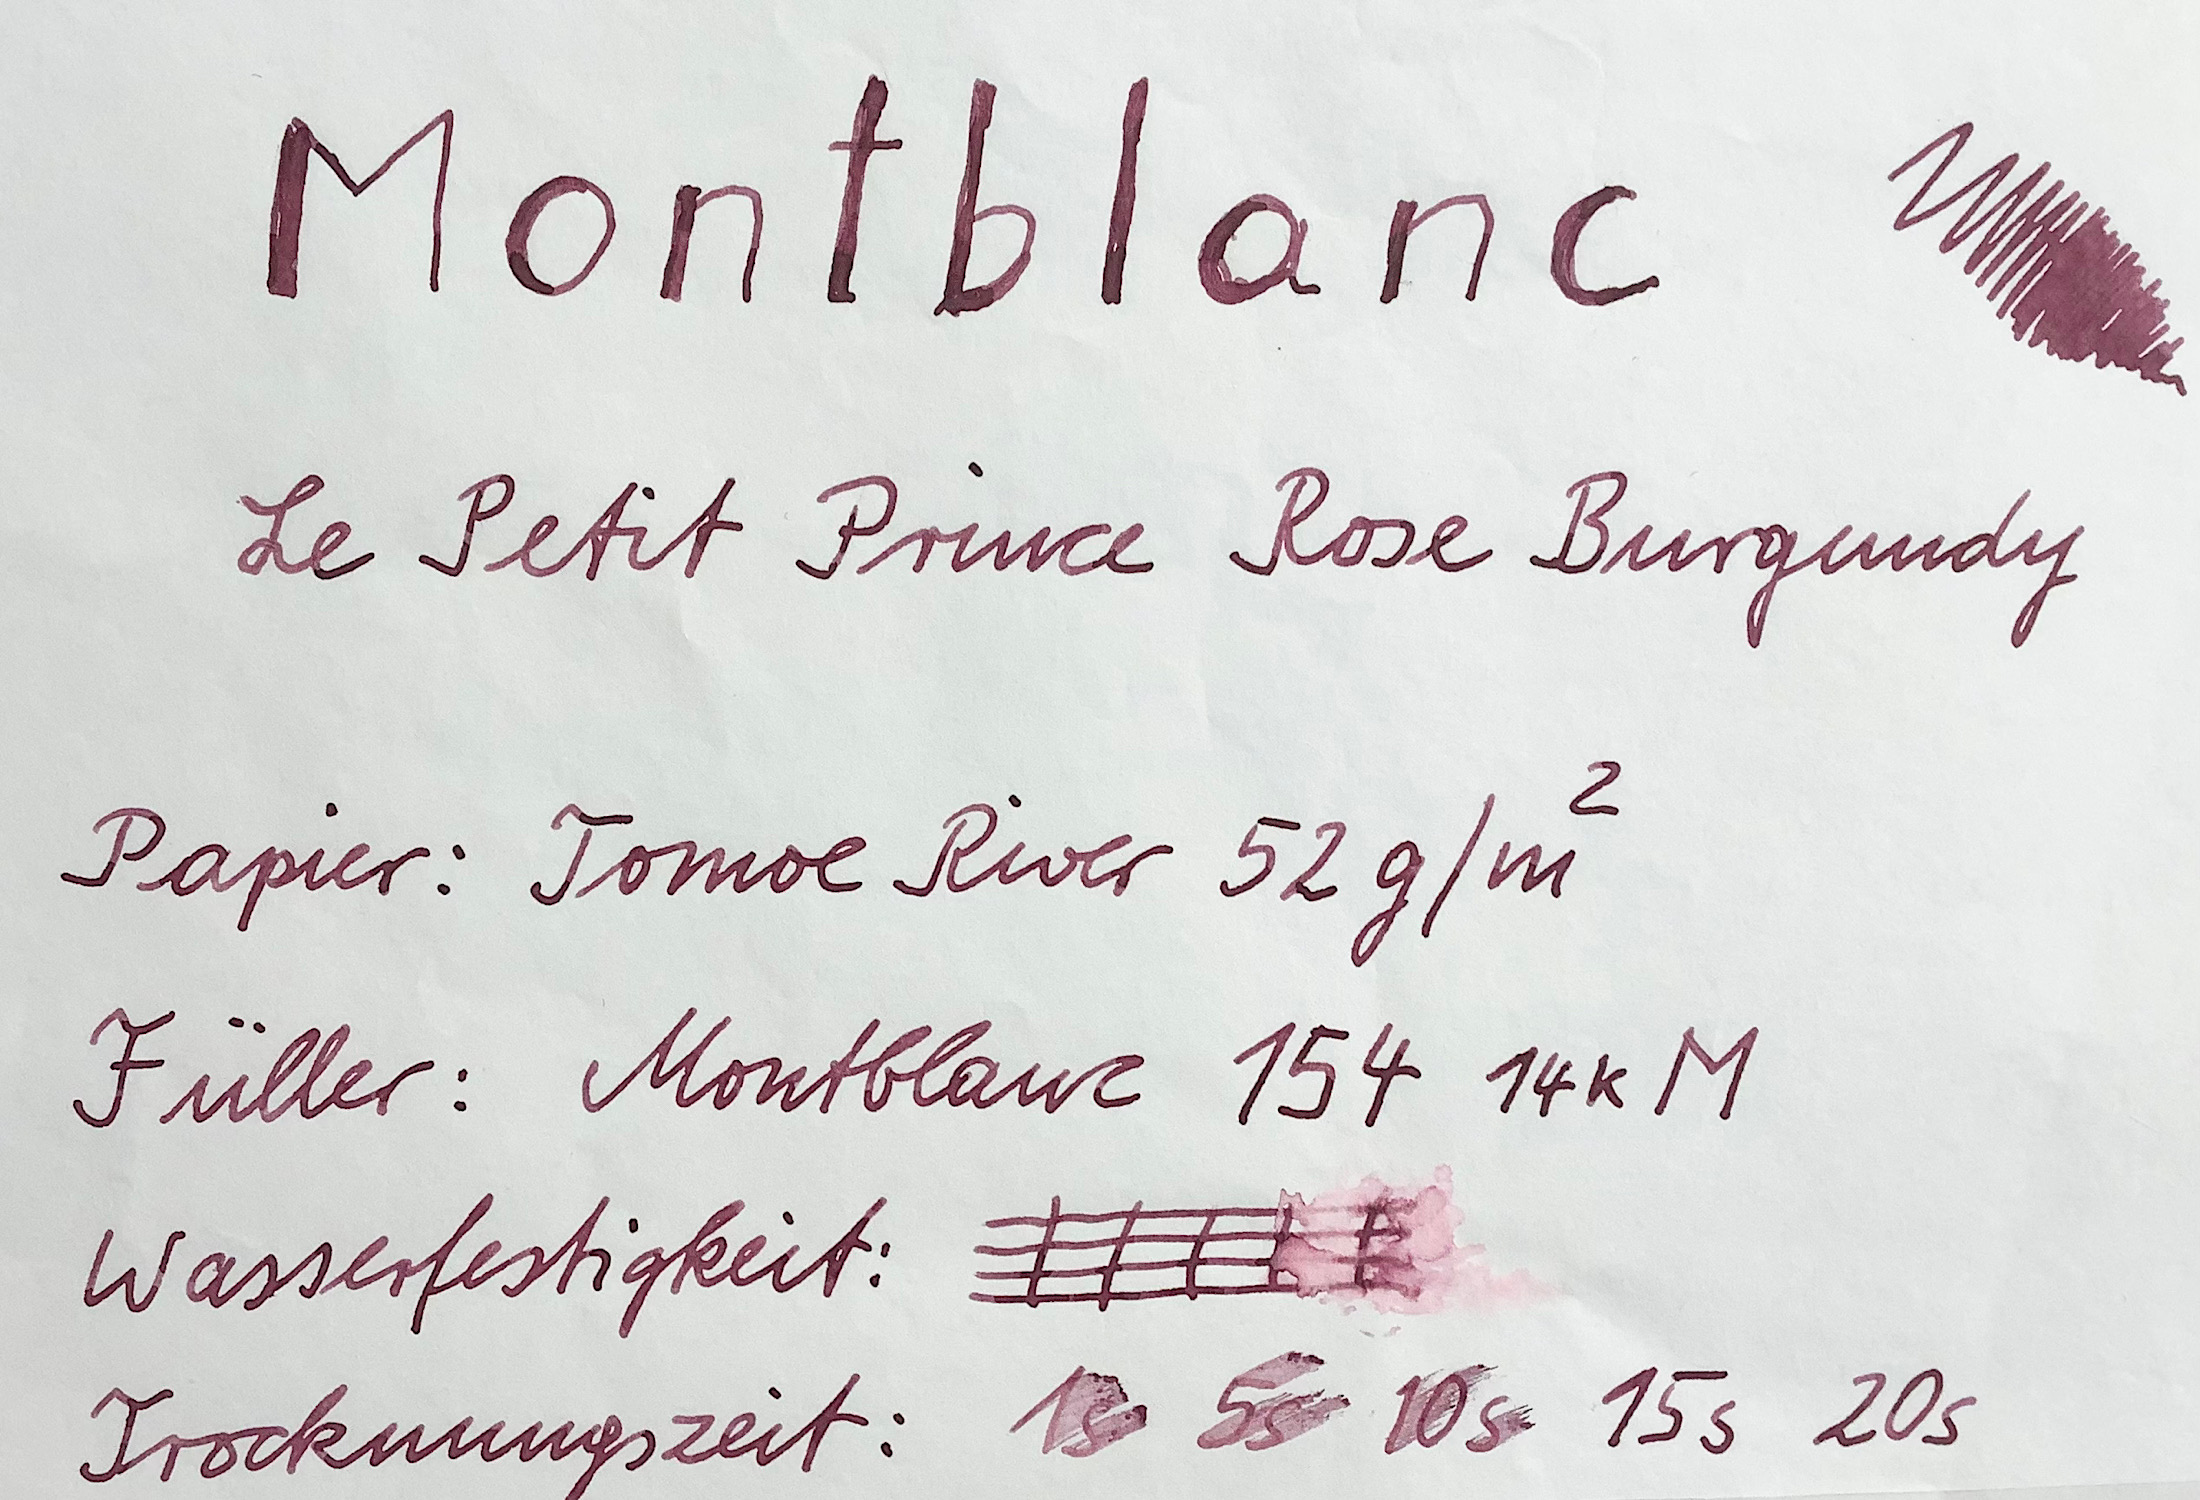 Montblanc
Le Petit Prince Rose Burgundy
Papier: Tomoe River 52 g/m²
Füller: Montblanc 154 14K M
Wasserfestigkeit:
Trocknungszeit: 1s 5s 10s 15s 20s